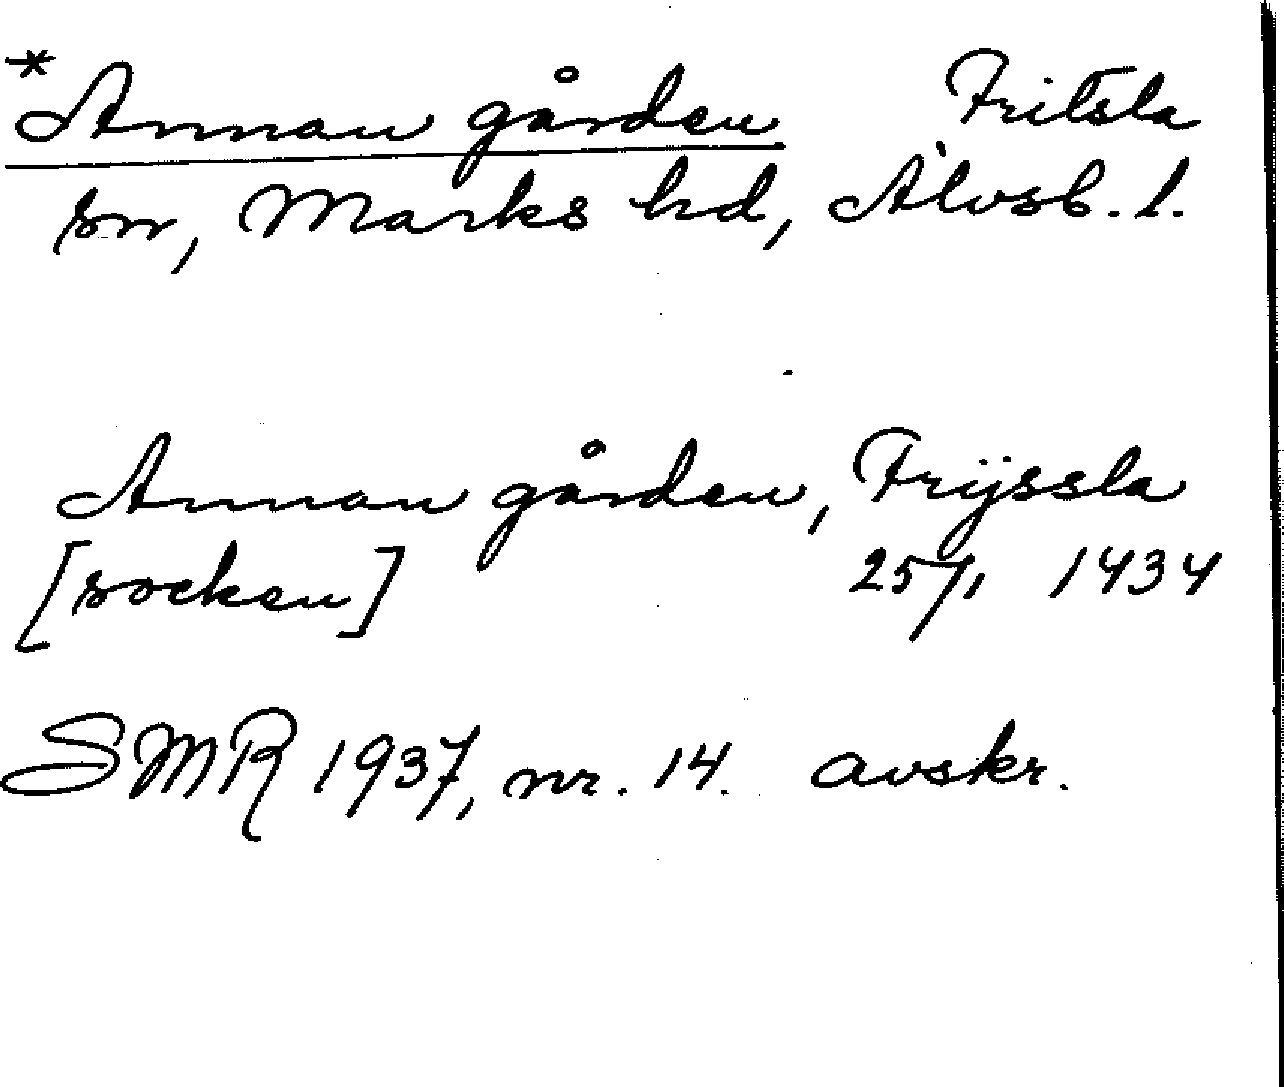 *Annau gården Fritsla
sn, Marks hd, Älvsb. l.
Annau gården, Frÿssla
[socken] 25/1 1434
SMR 1937, nr. 14. avskr.